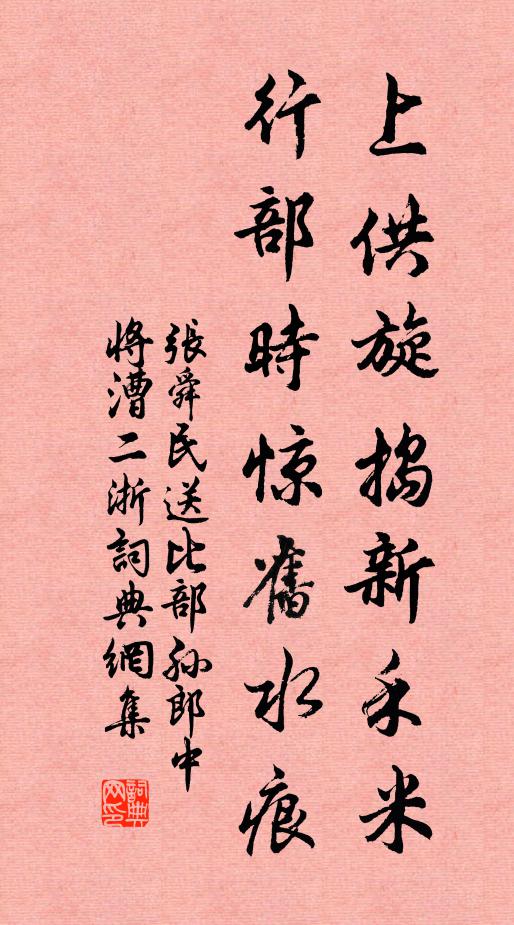 上供旋捣新禾米
行部時惊舊水痕
張舜民送比部孙郎中
将漕二浙詞典網集
詞典网印